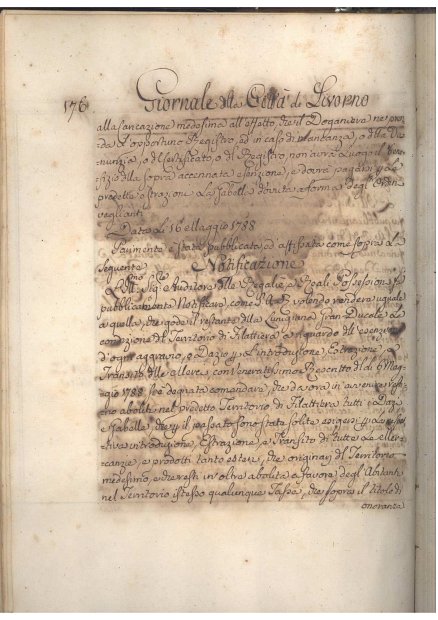 176
Giornale della Città di Livorno
alla Cancazione medesima all'effetto, che il Doganiere ne pren
da l'opportuno Registro, ed in caso di mancanza, o della De
nunzia, o del Certificato, o del Registro, non avrà luogo il Bene
fizio della sopra accennata esenzione, e dovrà pagarsi per le
predette estrazioni la Gabella dovuta a forma degl'Ordini
veglianti
Dato li 16 Maggio 1788
Parimente è stata pubblicata, ed affissata come sopra la
seguente
Notificazione
L'Ill.mo Sig.re Auditore delle Regalie, e Reali Possessioni fa
pubblicamente Notificare, come S. A. R. volendo rendere uguale
a quella, che gode il restante della Lunigiana Gran-Ducale la
condizione del Territorio di Filattiera a riguardo dell'esenzione
d'ogni aggravio, o Dazio per l'introduzione, Estrazione, e
Transito delle Merci, con Veneratissimo Rescritto di 6 Mag
gio 1788 si è degnata comandare, che da ora in avvenire res
tino aboliti nel predetto Territorio di Filattiera tutti i Dazi
e Gabelle, che per il passato sono state solite esigersi per la respe
ttiva introduzione, Estrazione, e Transito di tutte le Mer
canzie, e prodotti tanto esteri, che originari del Territorio
medesimo, e che resti in oltre abolita a favore degl'Abitanti
nel Territorio istesso qualunque Tassa, che sopra il titolo di
onoranza